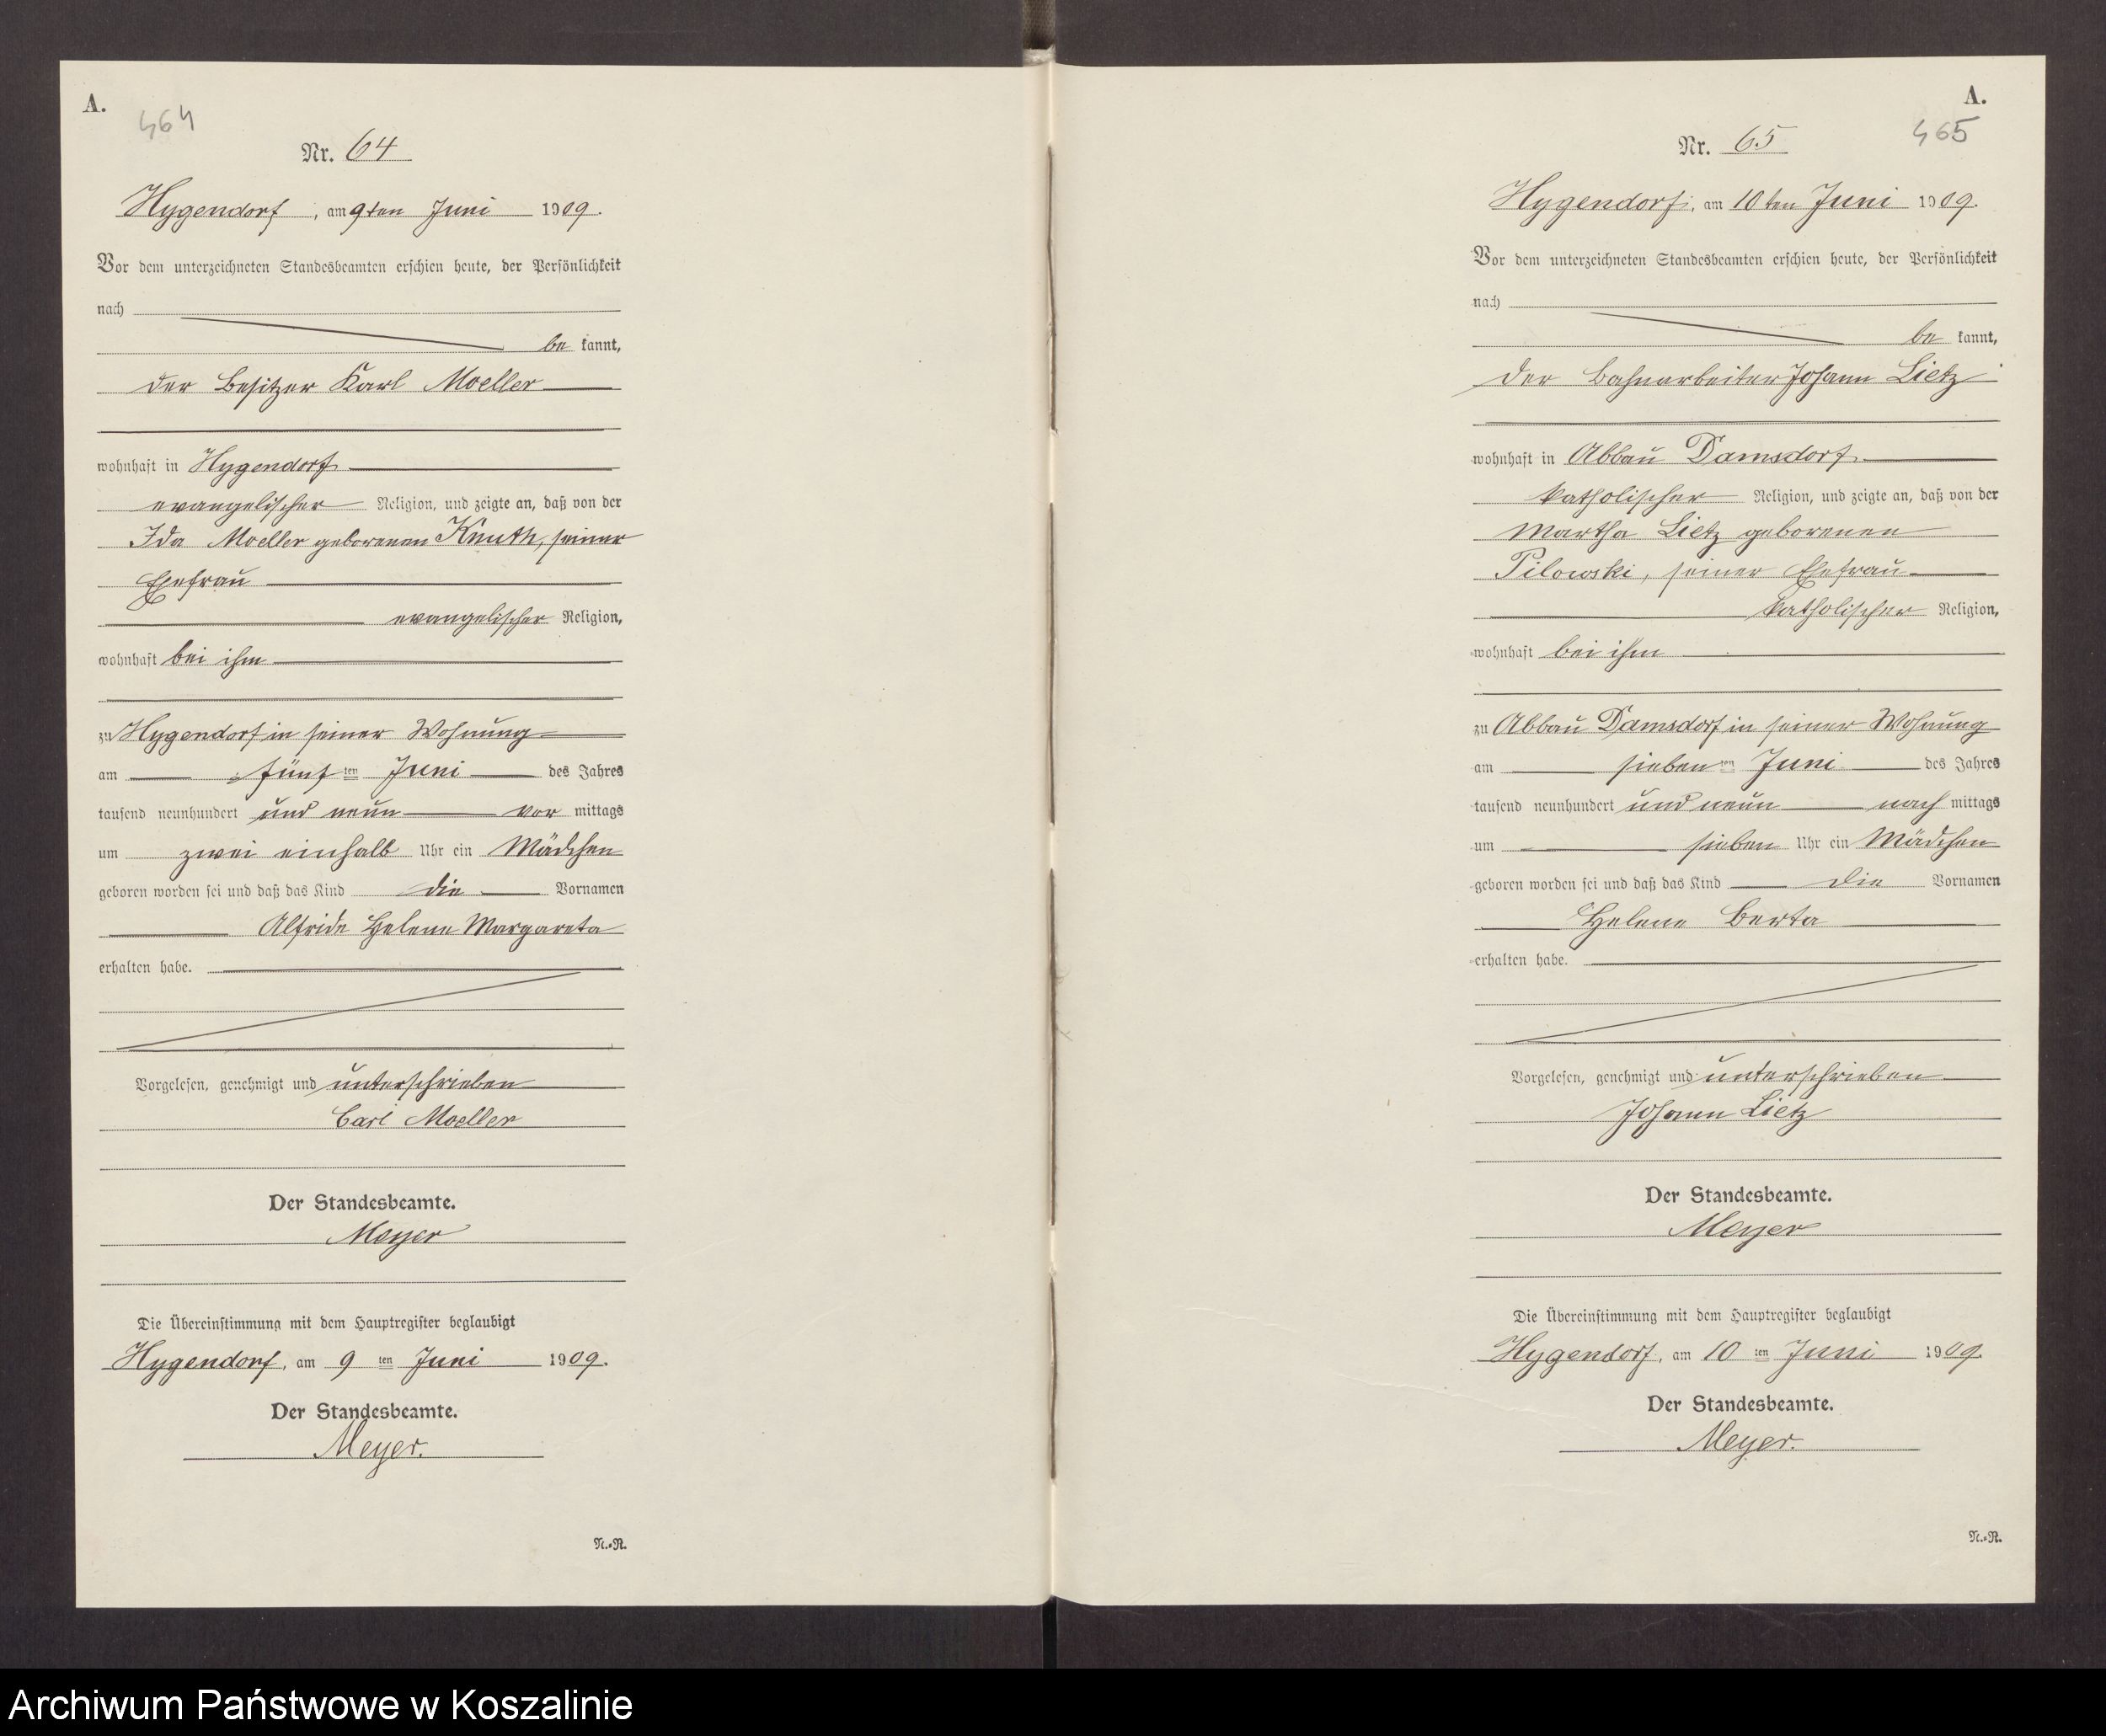 A.
464
Nr. 64
Hygendorf, am 9ten Juni 1909.
Vor dem unterzeichneten Standesbeamten erschien heute, der Persönlichkeit
nach
be kannt,
der Besitzer Karl Moeller
wohnhaft in Hygendorf
evangelischer Religion, und zeigte an, daß von der
Ida Moeller geborenen Knuth, seiner
Ehefrau
evangelischer Religion,
wohnhaft bei ihm
zu Hygendorf in seiner Wohnung
am fünf ten Juni des Jahres
tausend neunhundert und neun vor mittags
um zwei einhalb Uhr ein Mädchen
geboren worden sei und daß das Kind die Vornamen
Alfride Helene Margareta
erhalten habe.
Vorgelesen, genehmigt und unterschrieben
Carl Moeller
Der Standesbeamte.
Meyer
Die Übereinstimmung mit dem Hauptregister beglaubigt
Hygendorf, am 9 ten Juni 1909.
Der Standesbeamte.
Meyer.
N.=R.
A.
465
Nr. 65
Hygendorf, am 10ten Juni 1909.
Vor dem unterzeichneten Standesbeamten erschien heute, der Persönlichkeit
nach
be kannt,
der Bahnarbeiter Johann Lietz
wohnhaft in Abbau Damsdorf
katholischer Religion, und zeigte an, daß von der
Martha Lietz geborenen
Pilowski, seiner Ehefrau
katholischer Religion,
wohnhaft bei ihm
zu Abbau Damsdorf in seiner Wohnung
am sieben ten Juni des Jahres
tausend neunhundert und neun nach mittags
um sieben Uhr ein Mädchen
geboren worden sei und daß das Kind die Vornamen
Helene Berta
erhalten habe.
Vorgelesen, genehmigt und unterschrieben
Johann Lietz
Der Standesbeamte.
Meyer
Die Übereinstimmung mit dem Hauptregister beglaubigt
Hygendorf, am 10 ten Juni 1909.
Der Standesbeamte.
Meyer.
N.=R.
Archiwum Państwowe w Koszalinie